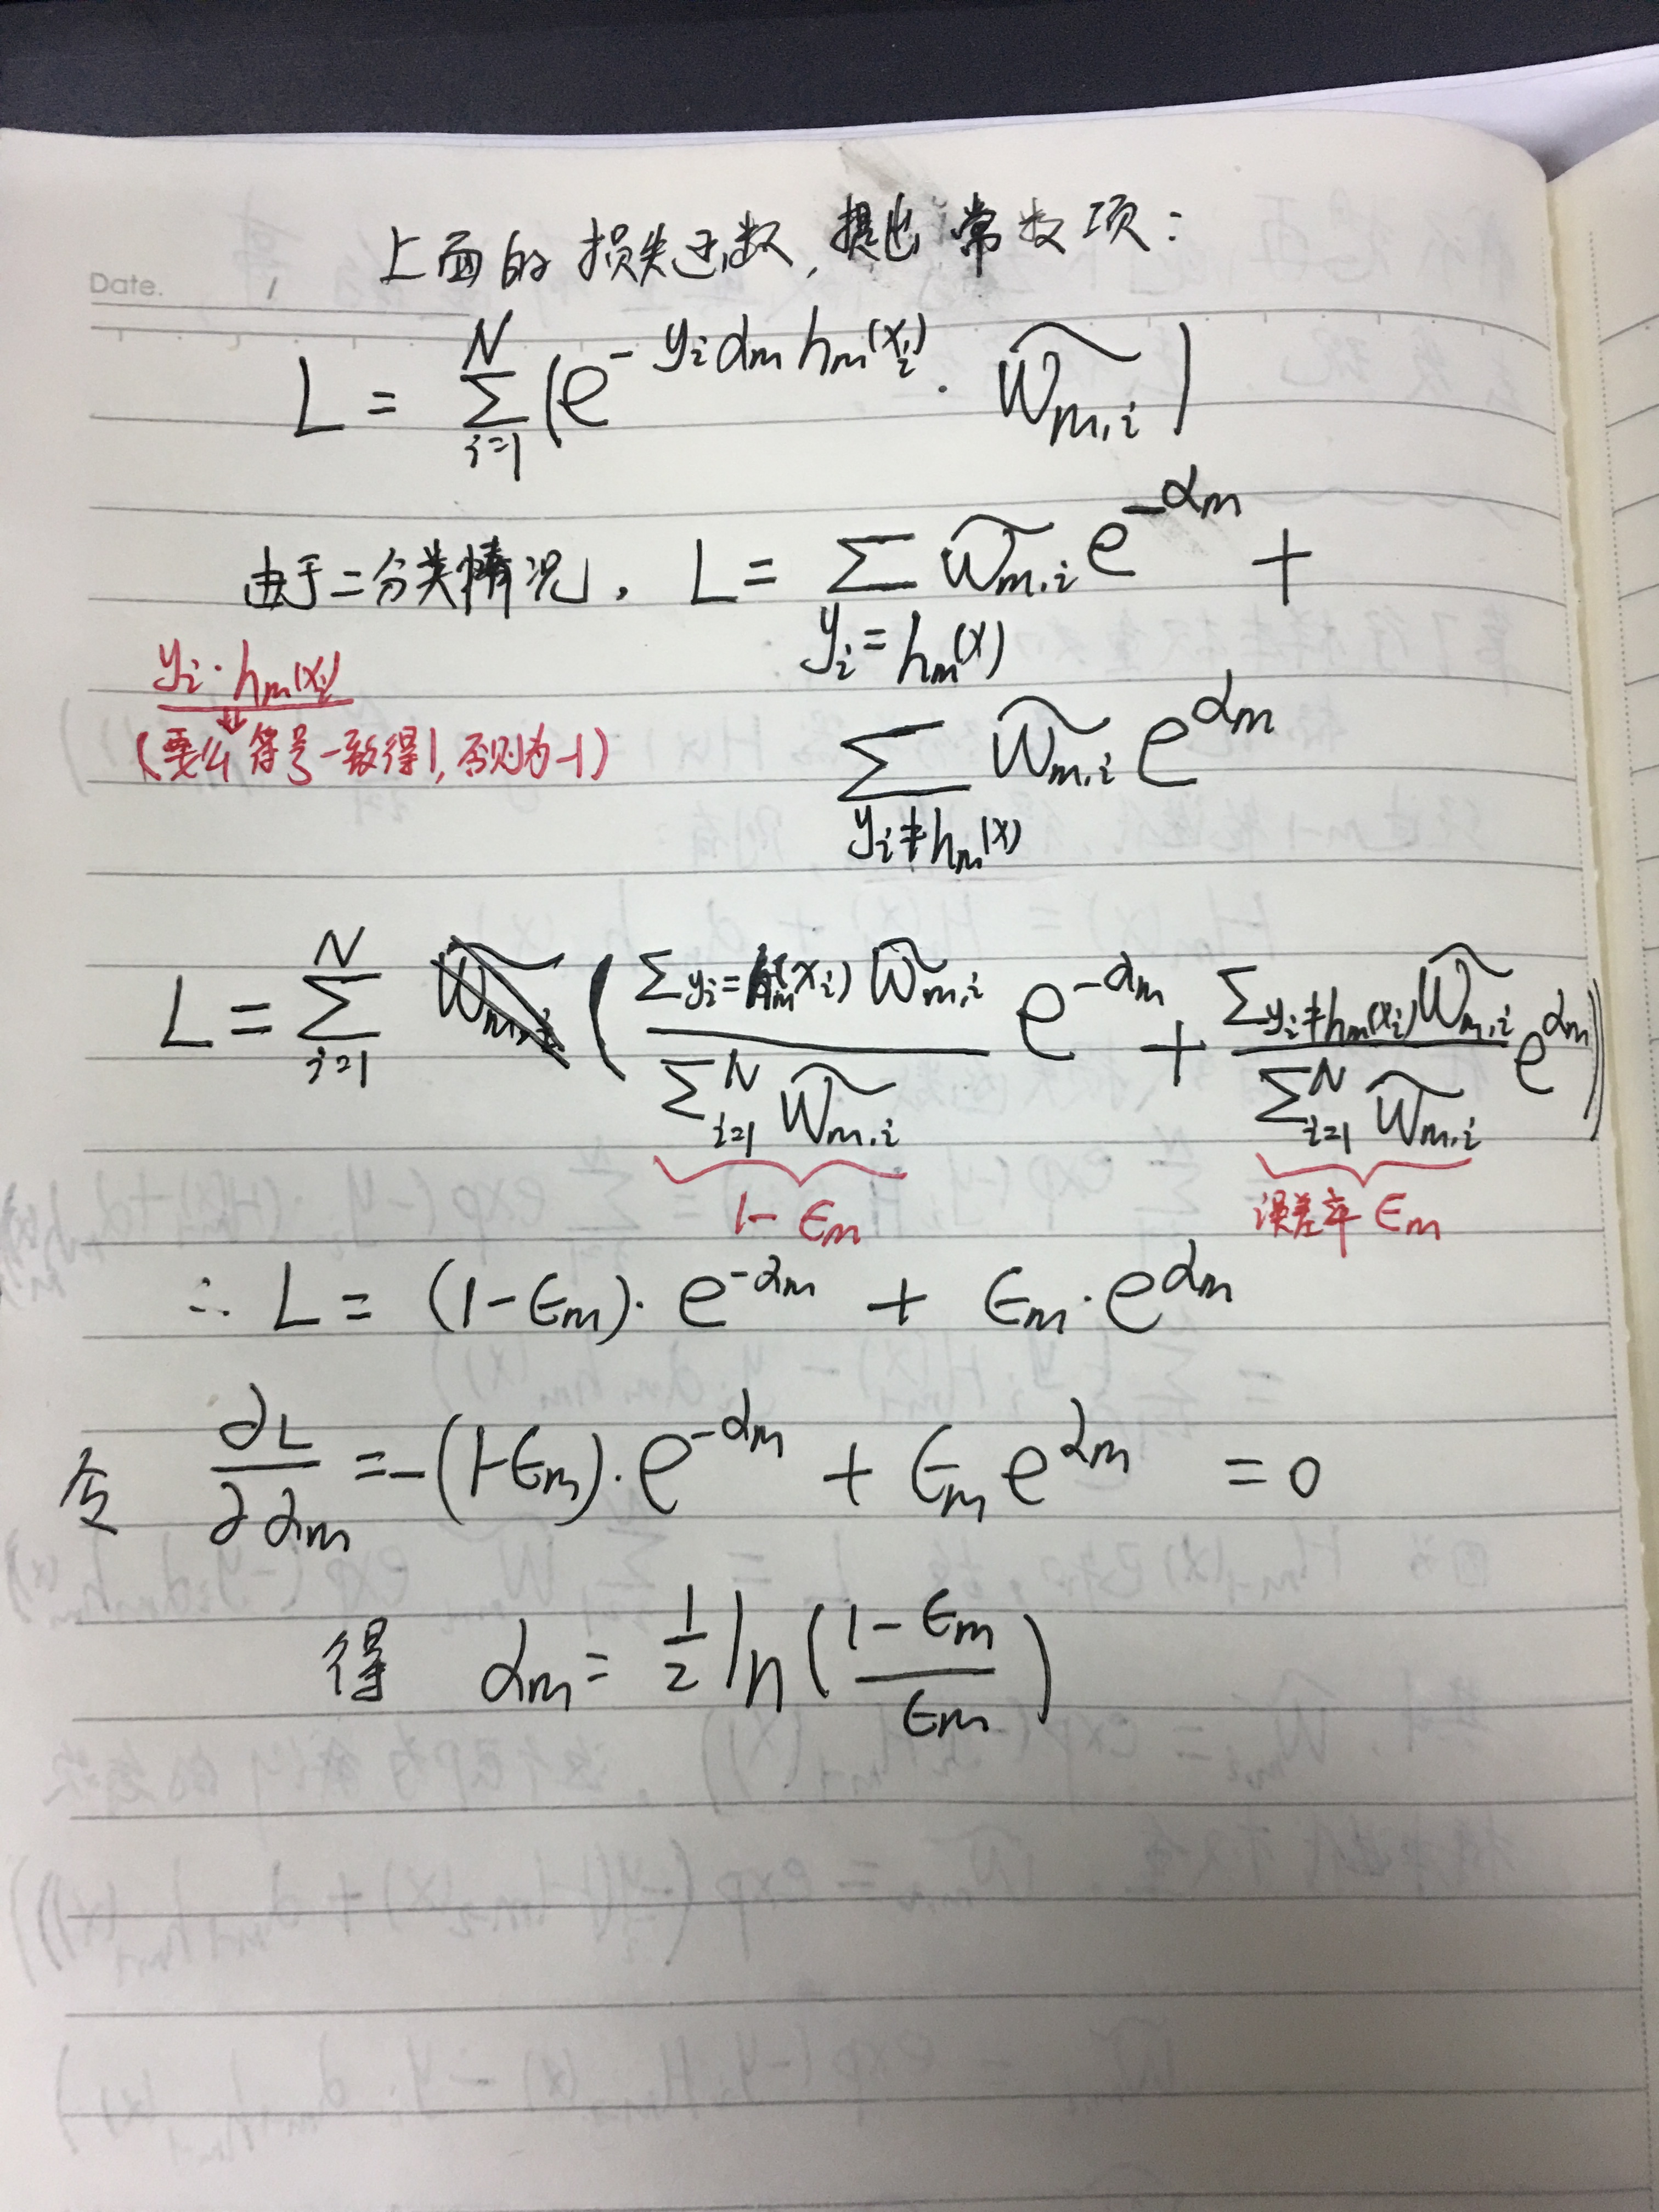 上面的损失函数,提出常数项:
Date. /
L = Σ_{i=1}^{N} (e^{-y_i α_m h_m(x_i)} · \widetilde{W}_{m,i})
由于二分类情况, L = Σ_{y_i = h_m(x)} \widetilde{W}_{m,i} e^{-α_m} +
y_i · h_m(x_i)
⇓
(要么符号一致得1,否则为-1)
Σ_{y_i ≠ h_m(x)} \widetilde{W}_{m,i} e^{α_m}
L = Σ_{i=1}^{N} ( \frac{Σ_{y_i = h_m(x_i)} \widetilde{W}_{m,i}}{Σ_{i=1}^{N} \widetilde{W}_{m,i}} e^{-α_m} + \frac{Σ_{y_i ≠ h_m(x_i)} \widetilde{W}_{m,i}}{Σ_{i=1}^{N} \widetilde{W}_{m,i}} e^{α_m} )
1 - ϵ_m 误差率 ϵ_m
∴ L = (1 - ϵ_m) · e^{-α_m} + ϵ_m · e^{α_m}
令 \frac{∂L}{∂α_m} = -(1-ϵ_m) · e^{-α_m} + ϵ_m e^{α_m} = 0
得 α_m = \frac{1}{2} ln(\frac{1 - ϵ_m}{ϵ_m})